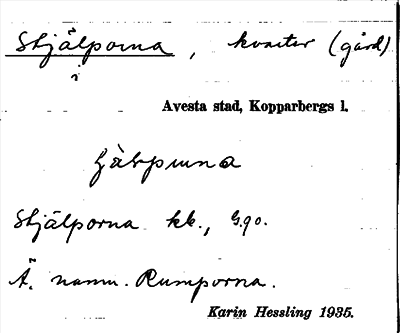 Stjälporna, kvarter (gård)
i
Avesta stad, Kopparbergs l.
Stjälporna kk., G.90.
Ä. namn. Rumporna.
Karin Hessling 1935.